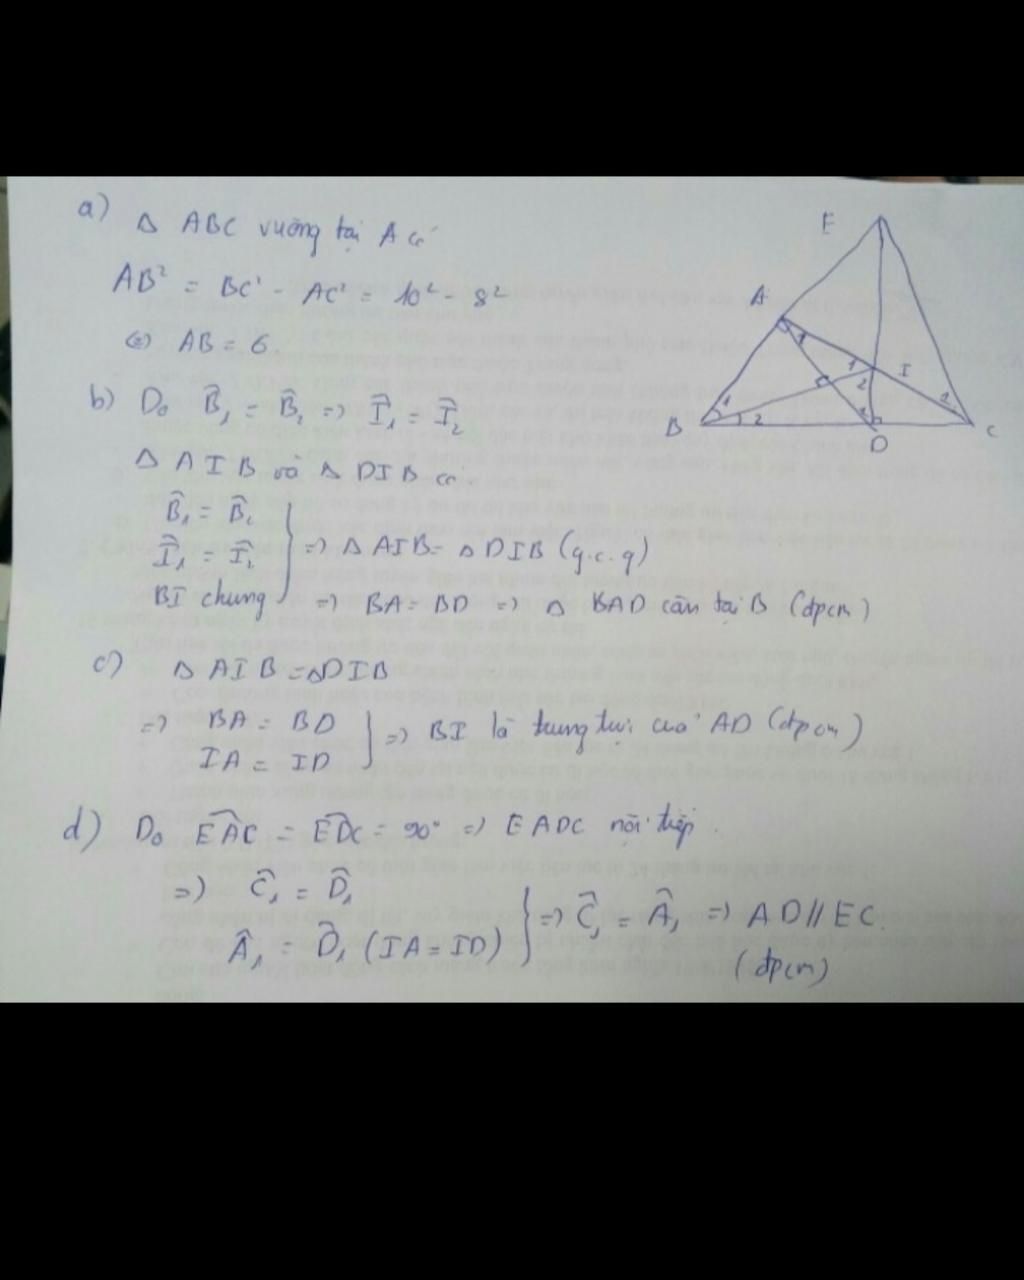 a) Δ ABC vuông tại A có
AB² = BC² - AC² = 10² - 8²
⇔ AB = 6.
b) Do B̂₁ = B̂₂ => Î₁ = Î₂
Δ AIB và Δ DIB có
B̂₁ = B̂₂
Î₁ = Î₂ } => Δ AIB = Δ DIB (g.c.g)
BI chung => BA = BD => Δ BAD cân tại B (đpcm)
c) Δ AIB = ΔDIB
=> BA = BD
IA = ID } => BI là trung trực của AD (đpcm)
d) Do EAC = EDC = 90° => EADC nội tiếp.
=> Ĉ₁ = D̂₁
Â₁ = D̂₁ (IA = ID) } => Ĉ₁ = Â₁ => AD // EC.
(đpcm)
E
A
1
1
I
2
1
2
1
2
B
D
C